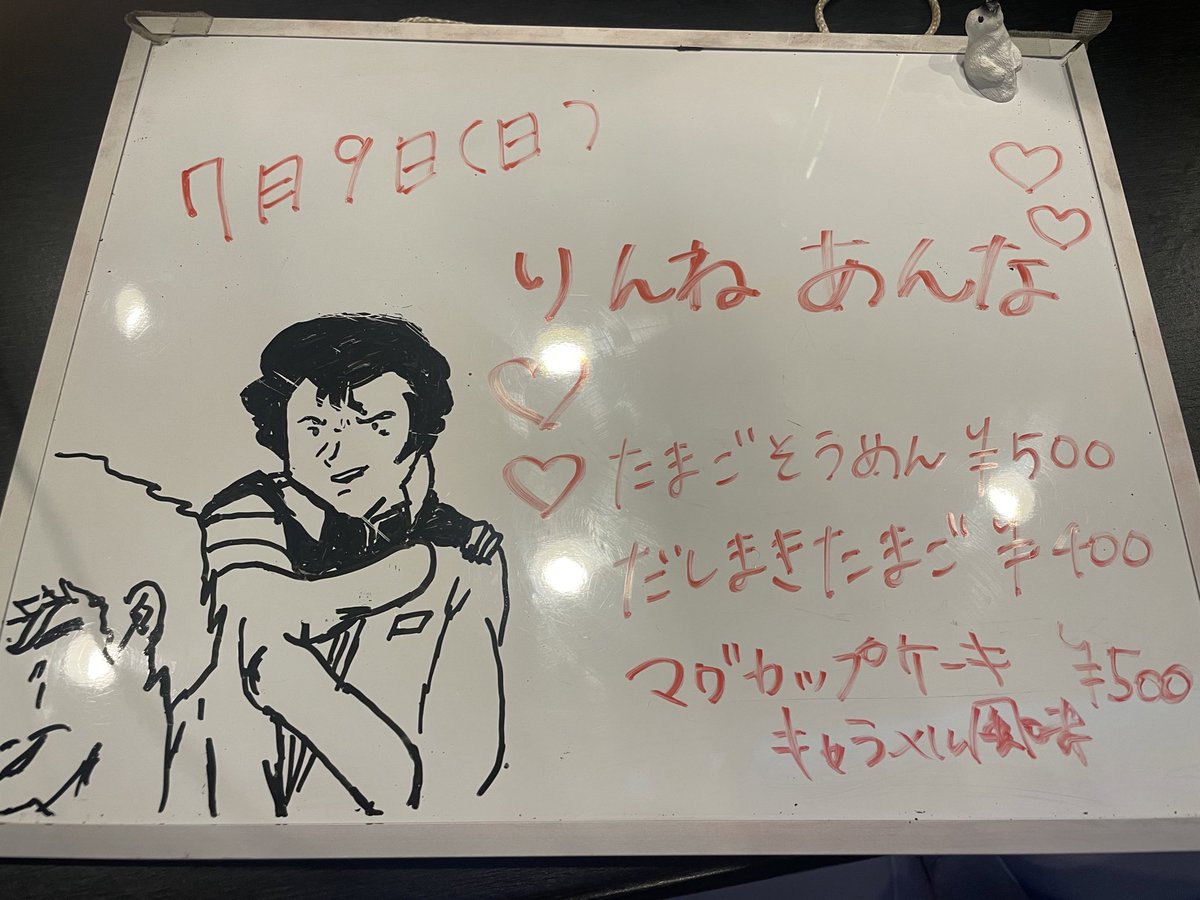 7月9日(日)
りんね あんな
たまごそうめん ¥500
だしまきたまご ¥400
マグカップケーキ ¥500
キャラメル風味